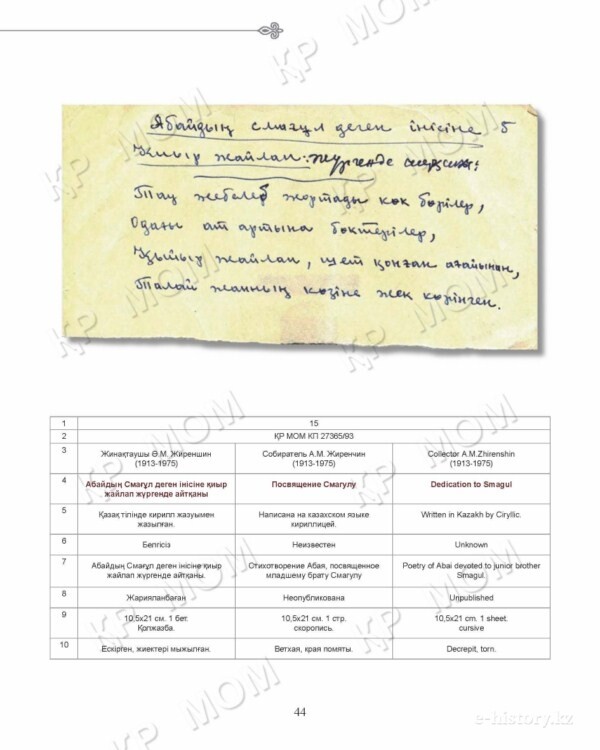 ҚР МОМ
Абайдың Смағұл деген інісіне 5
Қиыр жайлап жүргенде
Тау жебелеп жортады көк бөрілер,
Одағы ат артына бөктерілер,
Қыйыр жайлап, шет қонған ағайынан,
Талай жанның көзіне жек көрінген.
1 15
2 ҚР МОМ КП 27365/93
3 Жинақтаушы Ә.М. Жиреншин (1913-1975) Собиратель А.М. Жиренчин (1913-1975) Collector A.M.Zhirenshin (1913-1975)
4 Абайдың Смағұл деген інісіне қиыр жайлап жүргенде айтқаны Посвящение Смагулу Dedication to Smagul
5 Қазақ тілінде кирилл жазуымен жазылған. Написана на казахском языке кириллицей. Written in Kazakh by Ciryllic.
6 Белгісіз Неизвестен Unknown
7 Абайдың Смағұл деген інісіне қиыр жайлап жүргенде айтқаны. Стихотворение Абая, посвященное младшему брату Смагулу Poetry of Abai devoted to junior brother Smagul.
8 Жарияланбаған Неопубликована Unpublished
9 10,5х21 см. 1 бет. Қолжазба. 10,5х21 см. 1 стр. скоропись. 10,5x21 cm. 1 sheet. cursive
10 Ескірген, жиектері мыжылған. Ветхая, края помяты. Decrepit, torn.
44
e-history.kz